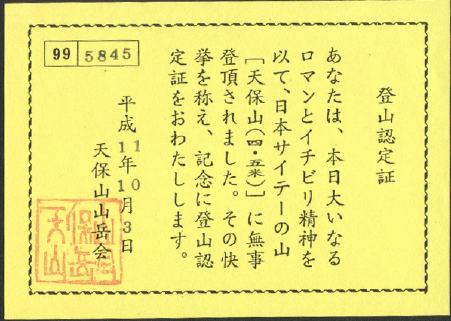 登山認定証
あなたは、本日大いなる
ロマンとイチビリ精神を
以て、日本サイテーの山
［天保山（四・五米）］に無事
登頂されました。その快
挙を称え、記念に登山認
定証をおわたしします。
平成11年10月3日
天保山山岳会
99 5845